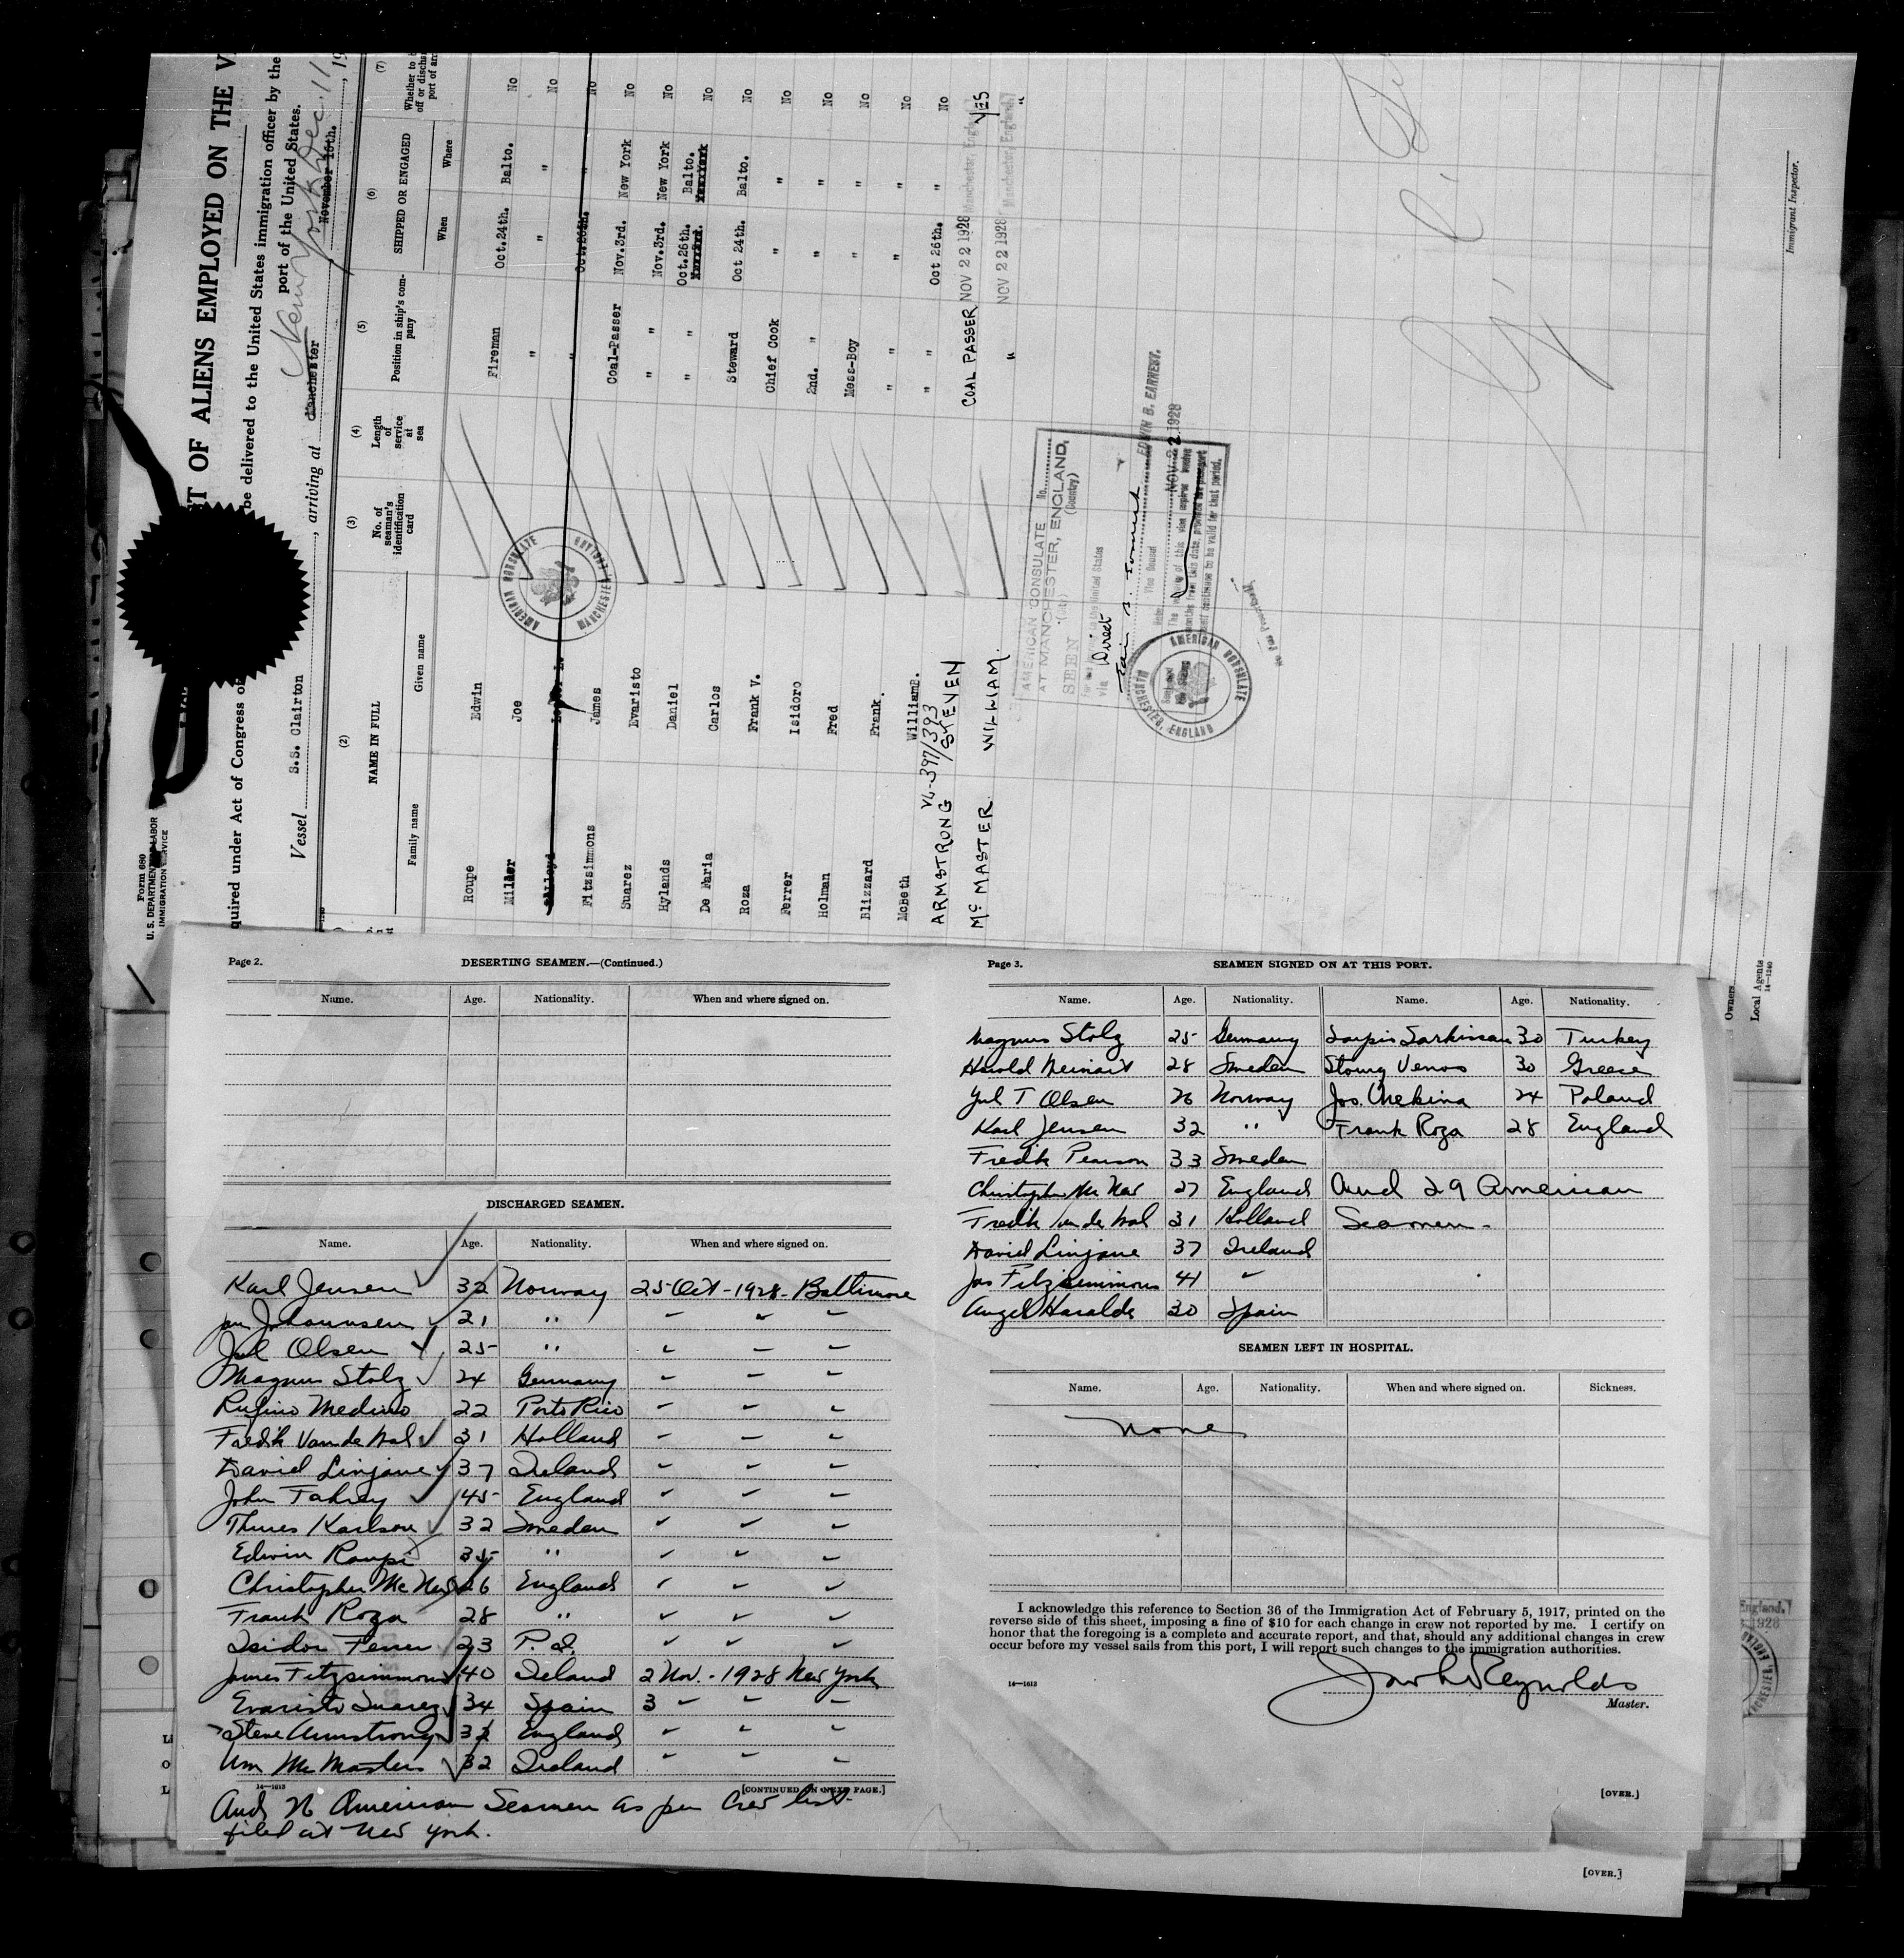 Form 680
U. S. DEPARTMENT OF LABOR
IMMIGRATION SERVICE
OF ALIENS EMPLOYED ON THE
quired under Act of Congress
be delivered to the United States immigration officer by the
port of the United States.
Vessel S.S. Clairton, arriving at Manchester New York Dec. 11, 19
November 15th.
(2) (3) (4) (5) (6) (7)
NAME IN FULL No. of seaman's identification card Length of service at sea Position in ship's company SHIPPED OR ENGAGED
Family name Given name When Where
Roupe Edwin Fireman Oct.24th. Balto. No
Miller Joe " " " No
Oct.26th. " No
Fitzsimmons James Coal-Passer Nov.3rd. New York No
Suarez Evaristo " " Nov.3rd. New York No
Hylands Daniel " " Oct.26th. Balto. No
De Faria Carlos Steward Oct 24th. Balto. No
Roza Frank V. Chief Cook " " No
Ferrer Isidoro 2nd. " " " No
Holman Fred Mess-Boy " " No
Blizzard Frank. " " " " No
McBeth WilliamB. " " Oct 26th. " No
ARMSTRONG STEVEN COAL PASSER NOV 22 1928 Manchester, England YES
McMASTER WILLIAM. " NOV 22 1928 Manchester, England "
AMERICAN CONSULATE No.
AT MANCHESTER, ENGLAND,
(City) (Country)
SEEN
via Direct
EDWIN B. EARNEST.
Vice Consul
NOV 22 1928
AMERICAN CONSULATE
MANCHESTER, ENGLAND
Immigrant Inspector.
Owners
Local Agents
14—1240
Page 2.
DESERTING SEAMEN.—(Continued.)
Name. Age. Nationality. When and where signed on.
DISCHARGED SEAMEN.
Name. Age. Nationality. When and where signed on.
Karl Jensen 32 Norway 25 Oct - 1928 - Baltimore
Johannsen 21 "
Jul Olsen 25 "
Magnus Stolz 24 Germany
Rufino Medino 22 Porto Rico
Fredk Van de Wal 31 Holland
David Linjane 37 Ireland
John Fahrey 45 England
Thures Karlson 32 Sweden
Edwin Roupi 35 "
Christopher Mc Nes 26 England
Frank Roza 28 "
Isidor Ferrer 23 P. I.
James Fitzsimmons 40 Ireland 2 Nov. - 1928 New York
Evaristo Suarez 34 Spain 3
Steve Armstrong 32 England
Wm Mc Masters 32 Ireland
14—1613
[CONTINUED ON NEXT PAGE.]
And 26 American Seamen as per Crew list
filed at New York.
Page 3.
SEAMEN SIGNED ON AT THIS PORT.
Name. Age. Nationality. Name. Age. Nationality.
Magnus Stolz 25 Germany Sarkissan 30 Turkey
Harold 28 Sweden Venos 30 Greece
Jul T Olsen 26 Norway Jos. Chekina 24 Poland
Karl Jensen 32 " Frank Roza 28 England
Fredk Pearson 33 Sweden
Christopher Mc Nes 27 England And 29 American
Fredk Van de Wal 31 Holland Seamen -
David Linjane 37 Ireland
Jas Fitzsimmons 41
Angel Haralde 30 Spain
SEAMEN LEFT IN HOSPITAL.
Name. Age. Nationality. When and where signed on. Sickness.
None
I acknowledge this reference to Section 36 of the Immigration Act of February 5, 1917, printed on the
reverse side of this sheet, imposing a fine of $10 for each change in crew not reported by me. I certify on
honor that the foregoing is a complete and accurate report, and that, should any additional changes in crew
occur before my vessel sails from this port, I will report such changes to the immigration authorities.
14—1613
Reynolds
Master.
[OVER.]
[OVER.]